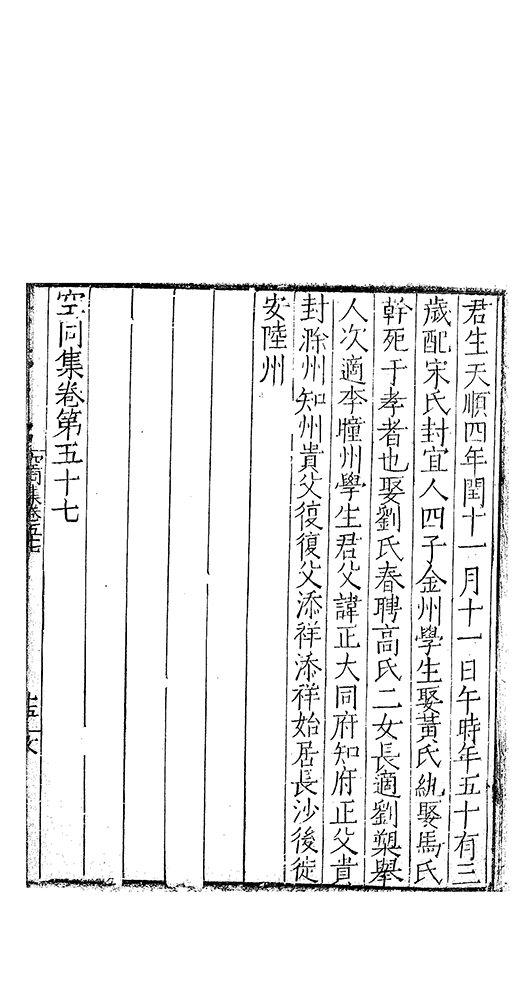 君生天順四年閏十一月十一日午時年五十有三
歲配宋氏封宜人四子金州學生娶黃氏紈娶馬氏
幹死于孝者也娶劉氏春聘高氏二女長適劉槊舉
人次適李疃州學生君父諱正大同府知府正父貴
封滁州知州貴父復復父添祥添祥始居長沙後徙
安陸州
空同集卷第五十七
空同集卷五七